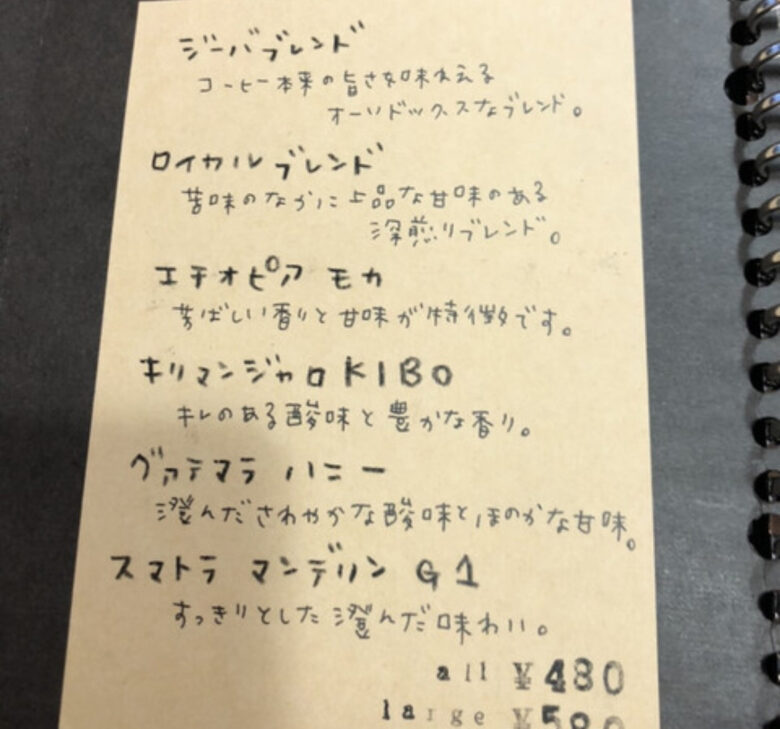 ジーバブレンド
コーヒー本来の旨さを味わえる
オーソドックスなブレンド。
ロイヤルブレンド
苦味のなかに上品な甘味のある
深煎りブレンド。
エチオピア モカ
芳ばしい香りと甘味が特徴です。
キリマンジャロ KIBO
キレのある酸味と豊かな香り。
グァテマラ ハニー
澄んださわやかな酸味とほのかな甘味。
スマトラ マンデリン G1
すっきりとした澄んだ味わい。
all ¥480
large ¥580